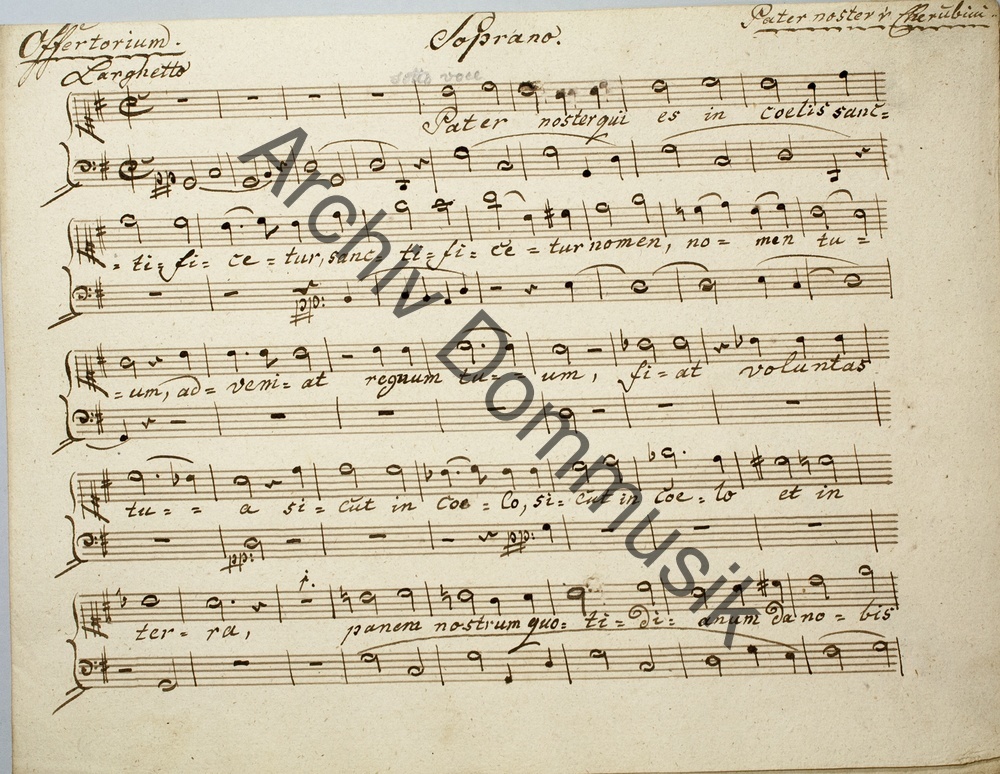 Offertorium. Soprano. Pater noster v. Cherubini.
Larghetto
sotto voce
Pater noster qui es in coelis sanc=
pp
= ti= fi= ce= tur, sanc= ti= fi= ce= tur nomen, no= men tu=
pp:
= um, ad= veni= at regnum tu= um, fi= at voluntas
tu= = a si= cut in coe= lo, si= cut in coe= lo et in
pp: pp:
1.
ter= ra, panem nostrum quo= ti= di= anum da no= bis
Archiv Dommusik